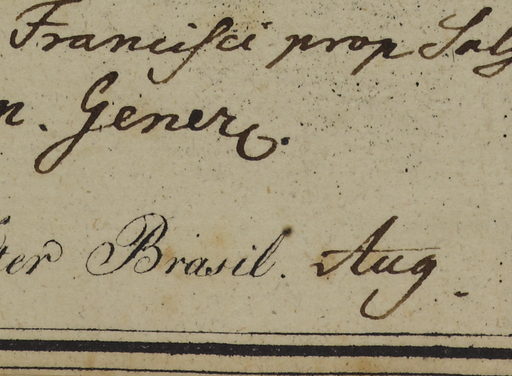 Francisci prop Salg
n. Gener.
ter Brasil. Aug.